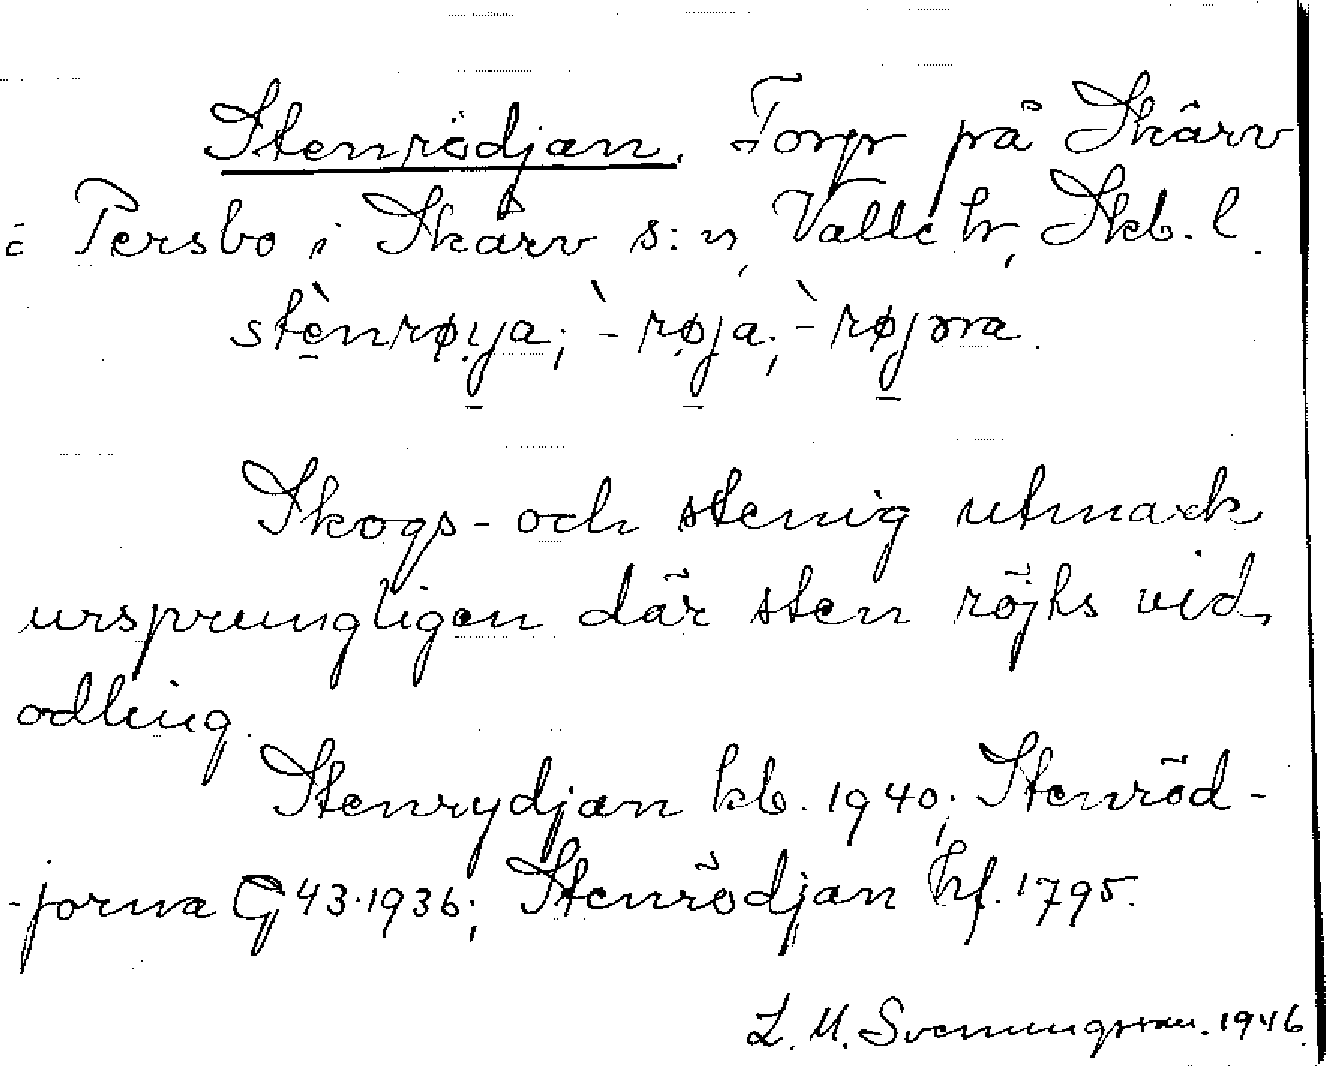 Stenrödjan. Torpr på Skärv
Persbo i Skärv s:n, Valle hr, Skb. l.
stènrøya; `- røja; `- røjora.
Skogs- och stenig utmark
ursprungligen där sten röjts vid
odling.
Stenrydjan kb. 1940; Stenröd-
-jorna G 43.1936; Stenrödjan hf. 1795.
L. M. Svenungsson. 1946.